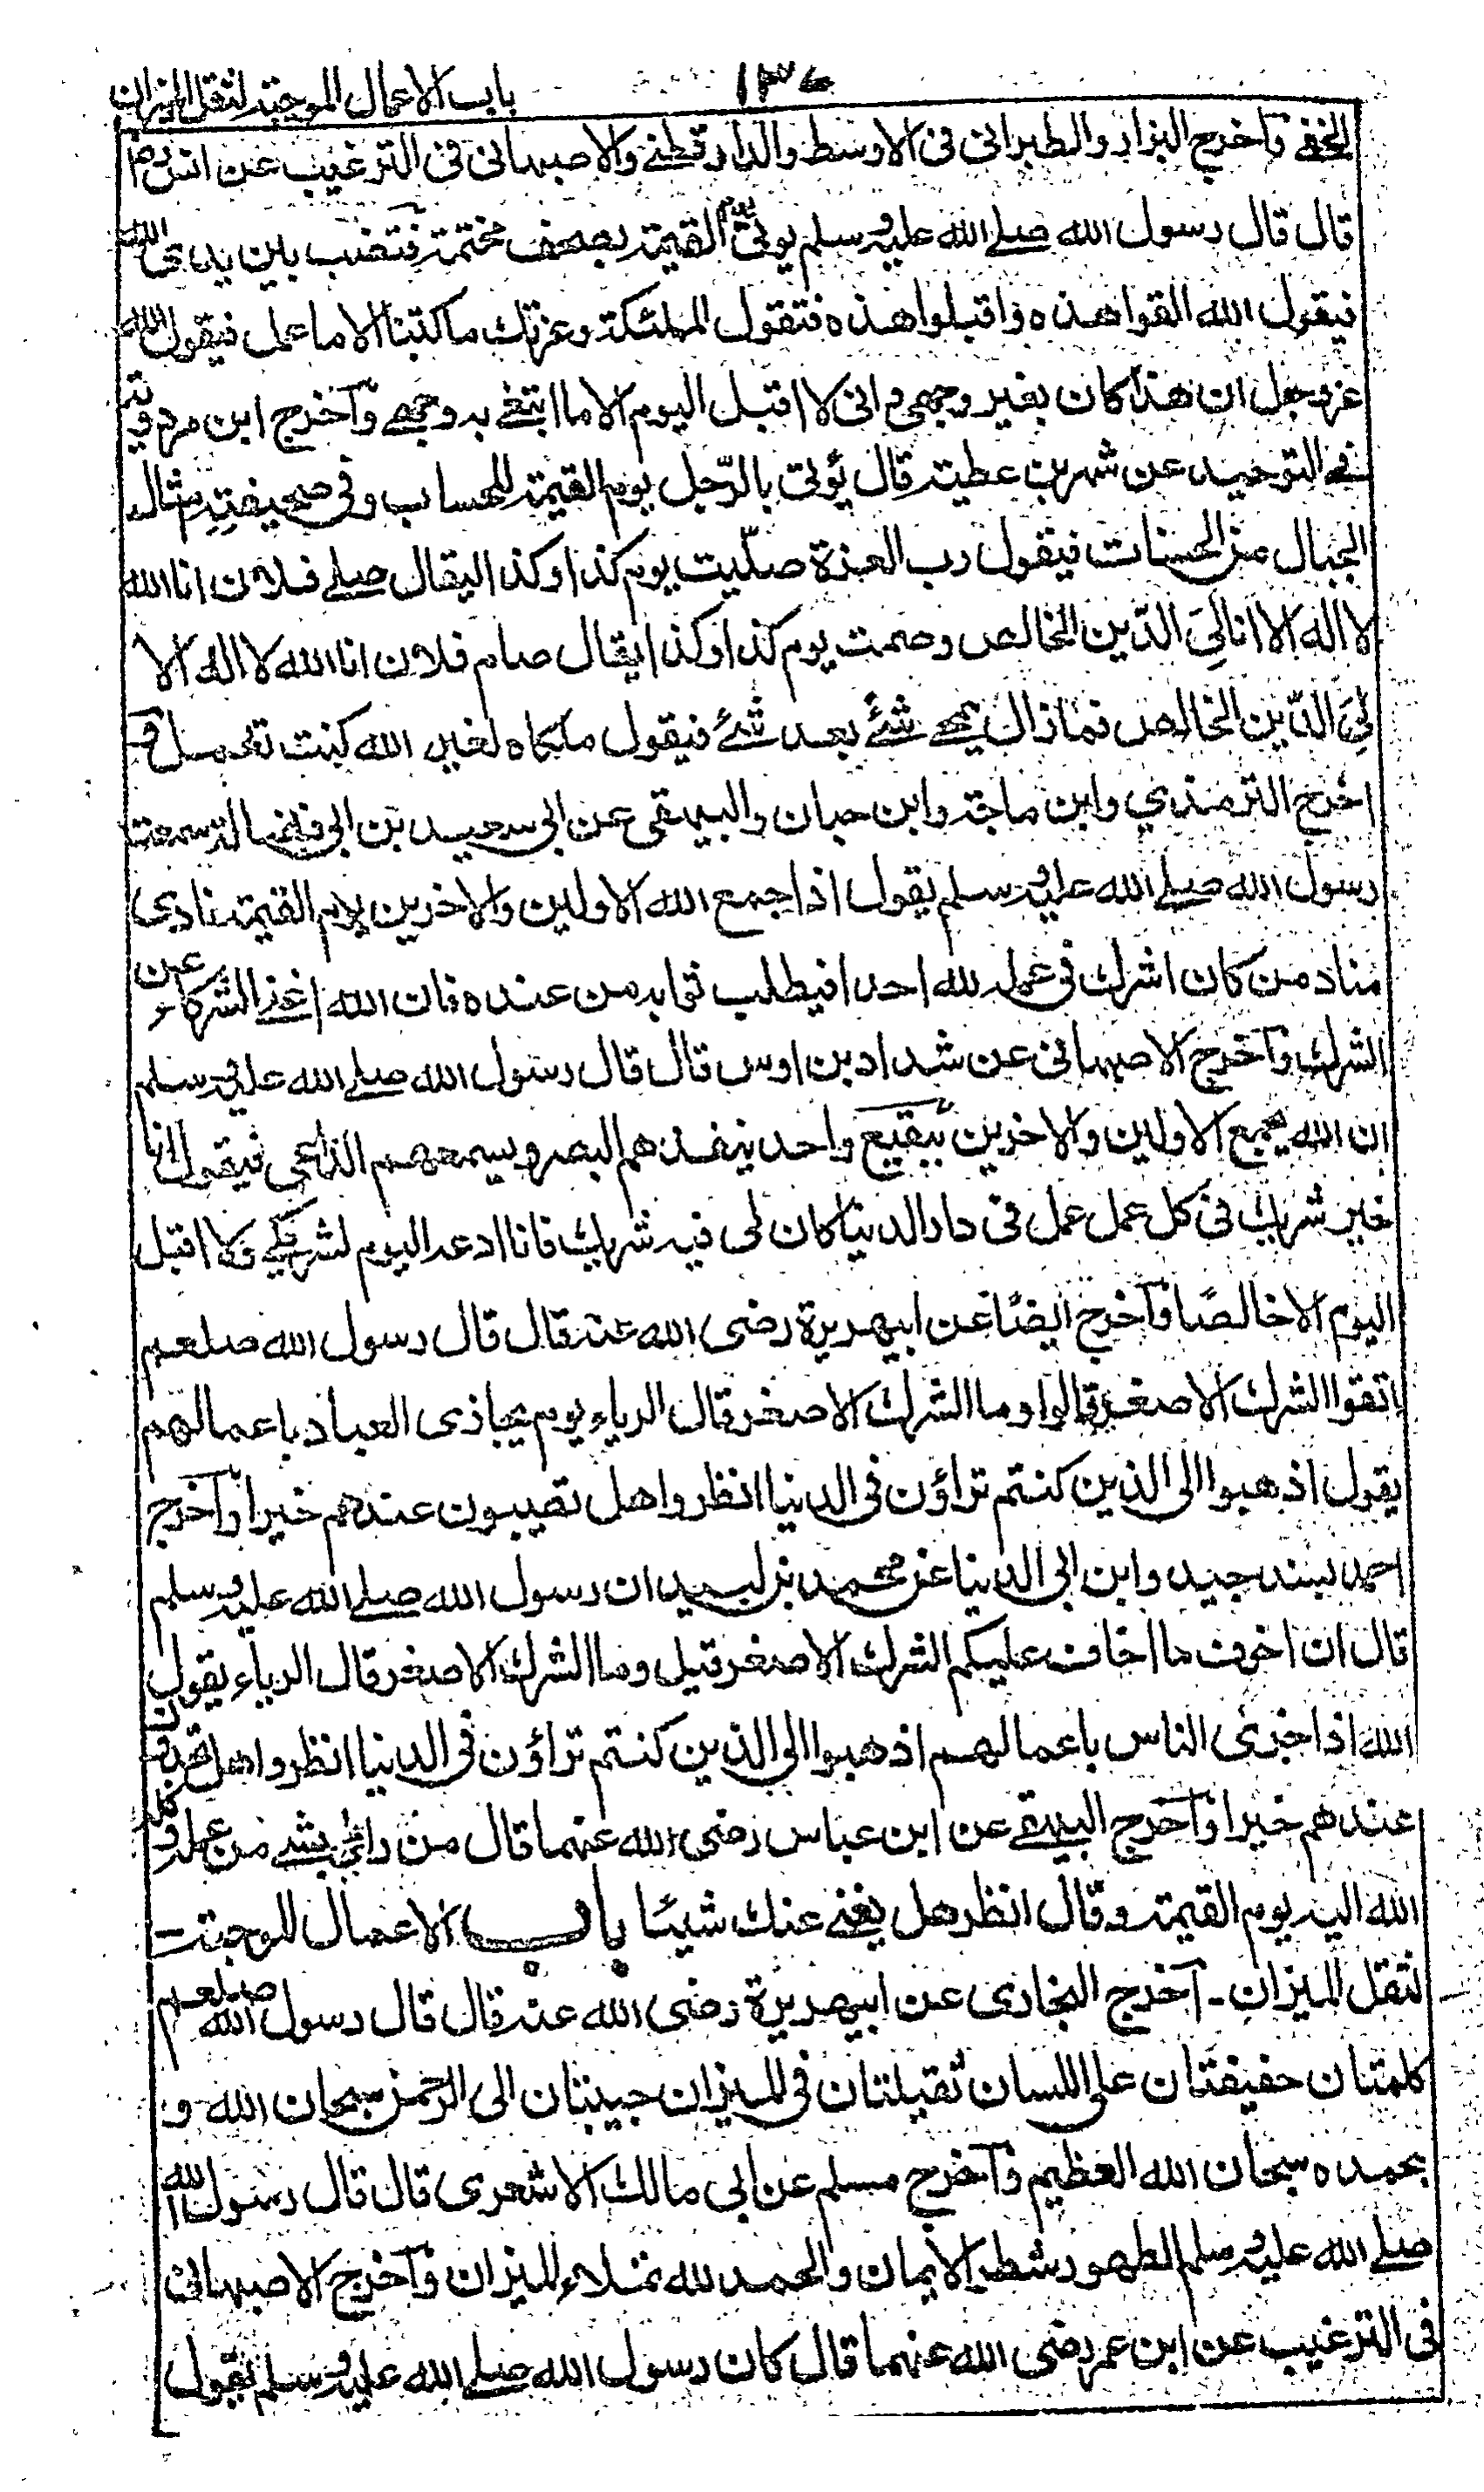 ۱۳۶
باب الاعمال الموجبة لثقل الميزان
الخفي وآخرج البزار والطبرانى فى الاوسط والدارقطنے والاصبهانى فى الترغيب عن انس رض
قال قال رسول الله صلے الله عليه وسلم يوتى يوم القيمة بصحف مختمة فتنصب بين يدى الله
فيقول الله القوا هذه واقبلوا هذه فتقول الملئكة وعزتك ما كتبنا الا ما عمل فيقول الله
عز وجل ان هذا كان بغير وجهى وانى لا اقبل اليوم الا ما ابتغے به وجهے وآخرج ابن مردويه
فے التوحيد عن شهر بن عطية قال يُوتى بالرّجل يوم القيمة للحساب وفى صحيفتِهِ امثال
الجبال من الحسنات فيقول رب العزة صلّيت يوم كذا وكذا ليقال صلے فلان انا الله
لا اله الا انا لِيَ الدّين الخالص وصمت يوم كذا وكذا ليقال صام فلان انا الله لا اله الا
لِيَ الدّين الخالص فما زال يمحے شئے بعد شئے فيقول ملكاه لغير الله كنت تعمل و
اخرج الترمذي وابن ماجة وابن حبان والبيهقى عن ابى سعيد بن ابى فضالة سمعت
رسول الله صلے الله عليه وسلم يقول اذا جمع الله الاولين والاخرين يوم القيمة نادى
مناد من كان اشرك فى عمله لله احدا فيطلب ثوابه من عنده فان الله اغنے الشركاء عن
الشرك وآخرج الاصبهانى عن شداد بن اوس قال قال رسول الله صلے الله عليه وسلم
ان الله يجمع الاولين والاخرين ببقيع واحد ينفذهم البصر ويسمعهم الداعى فيقول انا
خير شريك فى كل عمل عمل فى دار الدنيا كان لى فيه شريك فانا ادعه اليوم لشريكے ولا اقبل
اليوم الا خالصًا وآخرج ايضًا عن ابيهريرة رضى الله عنه قال قال رسول الله صلعم
اتقوا الشرك الاصغر قالوا وما الشرك الاصغر قال الرياء يوم يجازى العباد باعمالهم
يقول اذهبوا الى الذين كنتم تراؤن فى الدنيا انظروا هل تصيبون عندهم خيرا وآخرج
احمد بسند جيد وابن ابى الدنيا عن محمد بن لبيد ان رسول الله صلے الله عليه وسلم
قال ان اخوف ما اخاف عليكم الشرك الاصغر قيل وما الشرك الاصغر قال الرياء يقول
الله اذا جزى الناس باعمالهم اذهبوا الى الذين كنتم تراؤن فى الدنيا انظروا هل تجدون
عندهم خيرا وآخرج البيهقے عن ابن عباس رضى الله عنهما قال من راىٰ بشے من عمله وكله
الله اليه يوم القيمة وقال انظر هل يغنے عنك شيئا باب الاعمال الموجبة
لثقل الميزان ـ آخرج البخارى عن ابيهريرة رضى الله عنه قال قال رسول الله صلعم
كلمتان خفيفتان على اللسان ثقيلتان فى الميزان حبيبتان الى الرحمن سبحان الله و
بحمده سبحان الله العظيم وآخرج مسلم عن ابى مالك الاشعرى قال قال رسول الله
صلے الله عليه وسلم الطهور شطر الايمان والحمد لله تملاء الميزان وآخرج الاصبهانى
فى الترغيب عن ابن عمر رضى الله عنهما قال كان رسول الله صلے الله عليه وسلم يقول